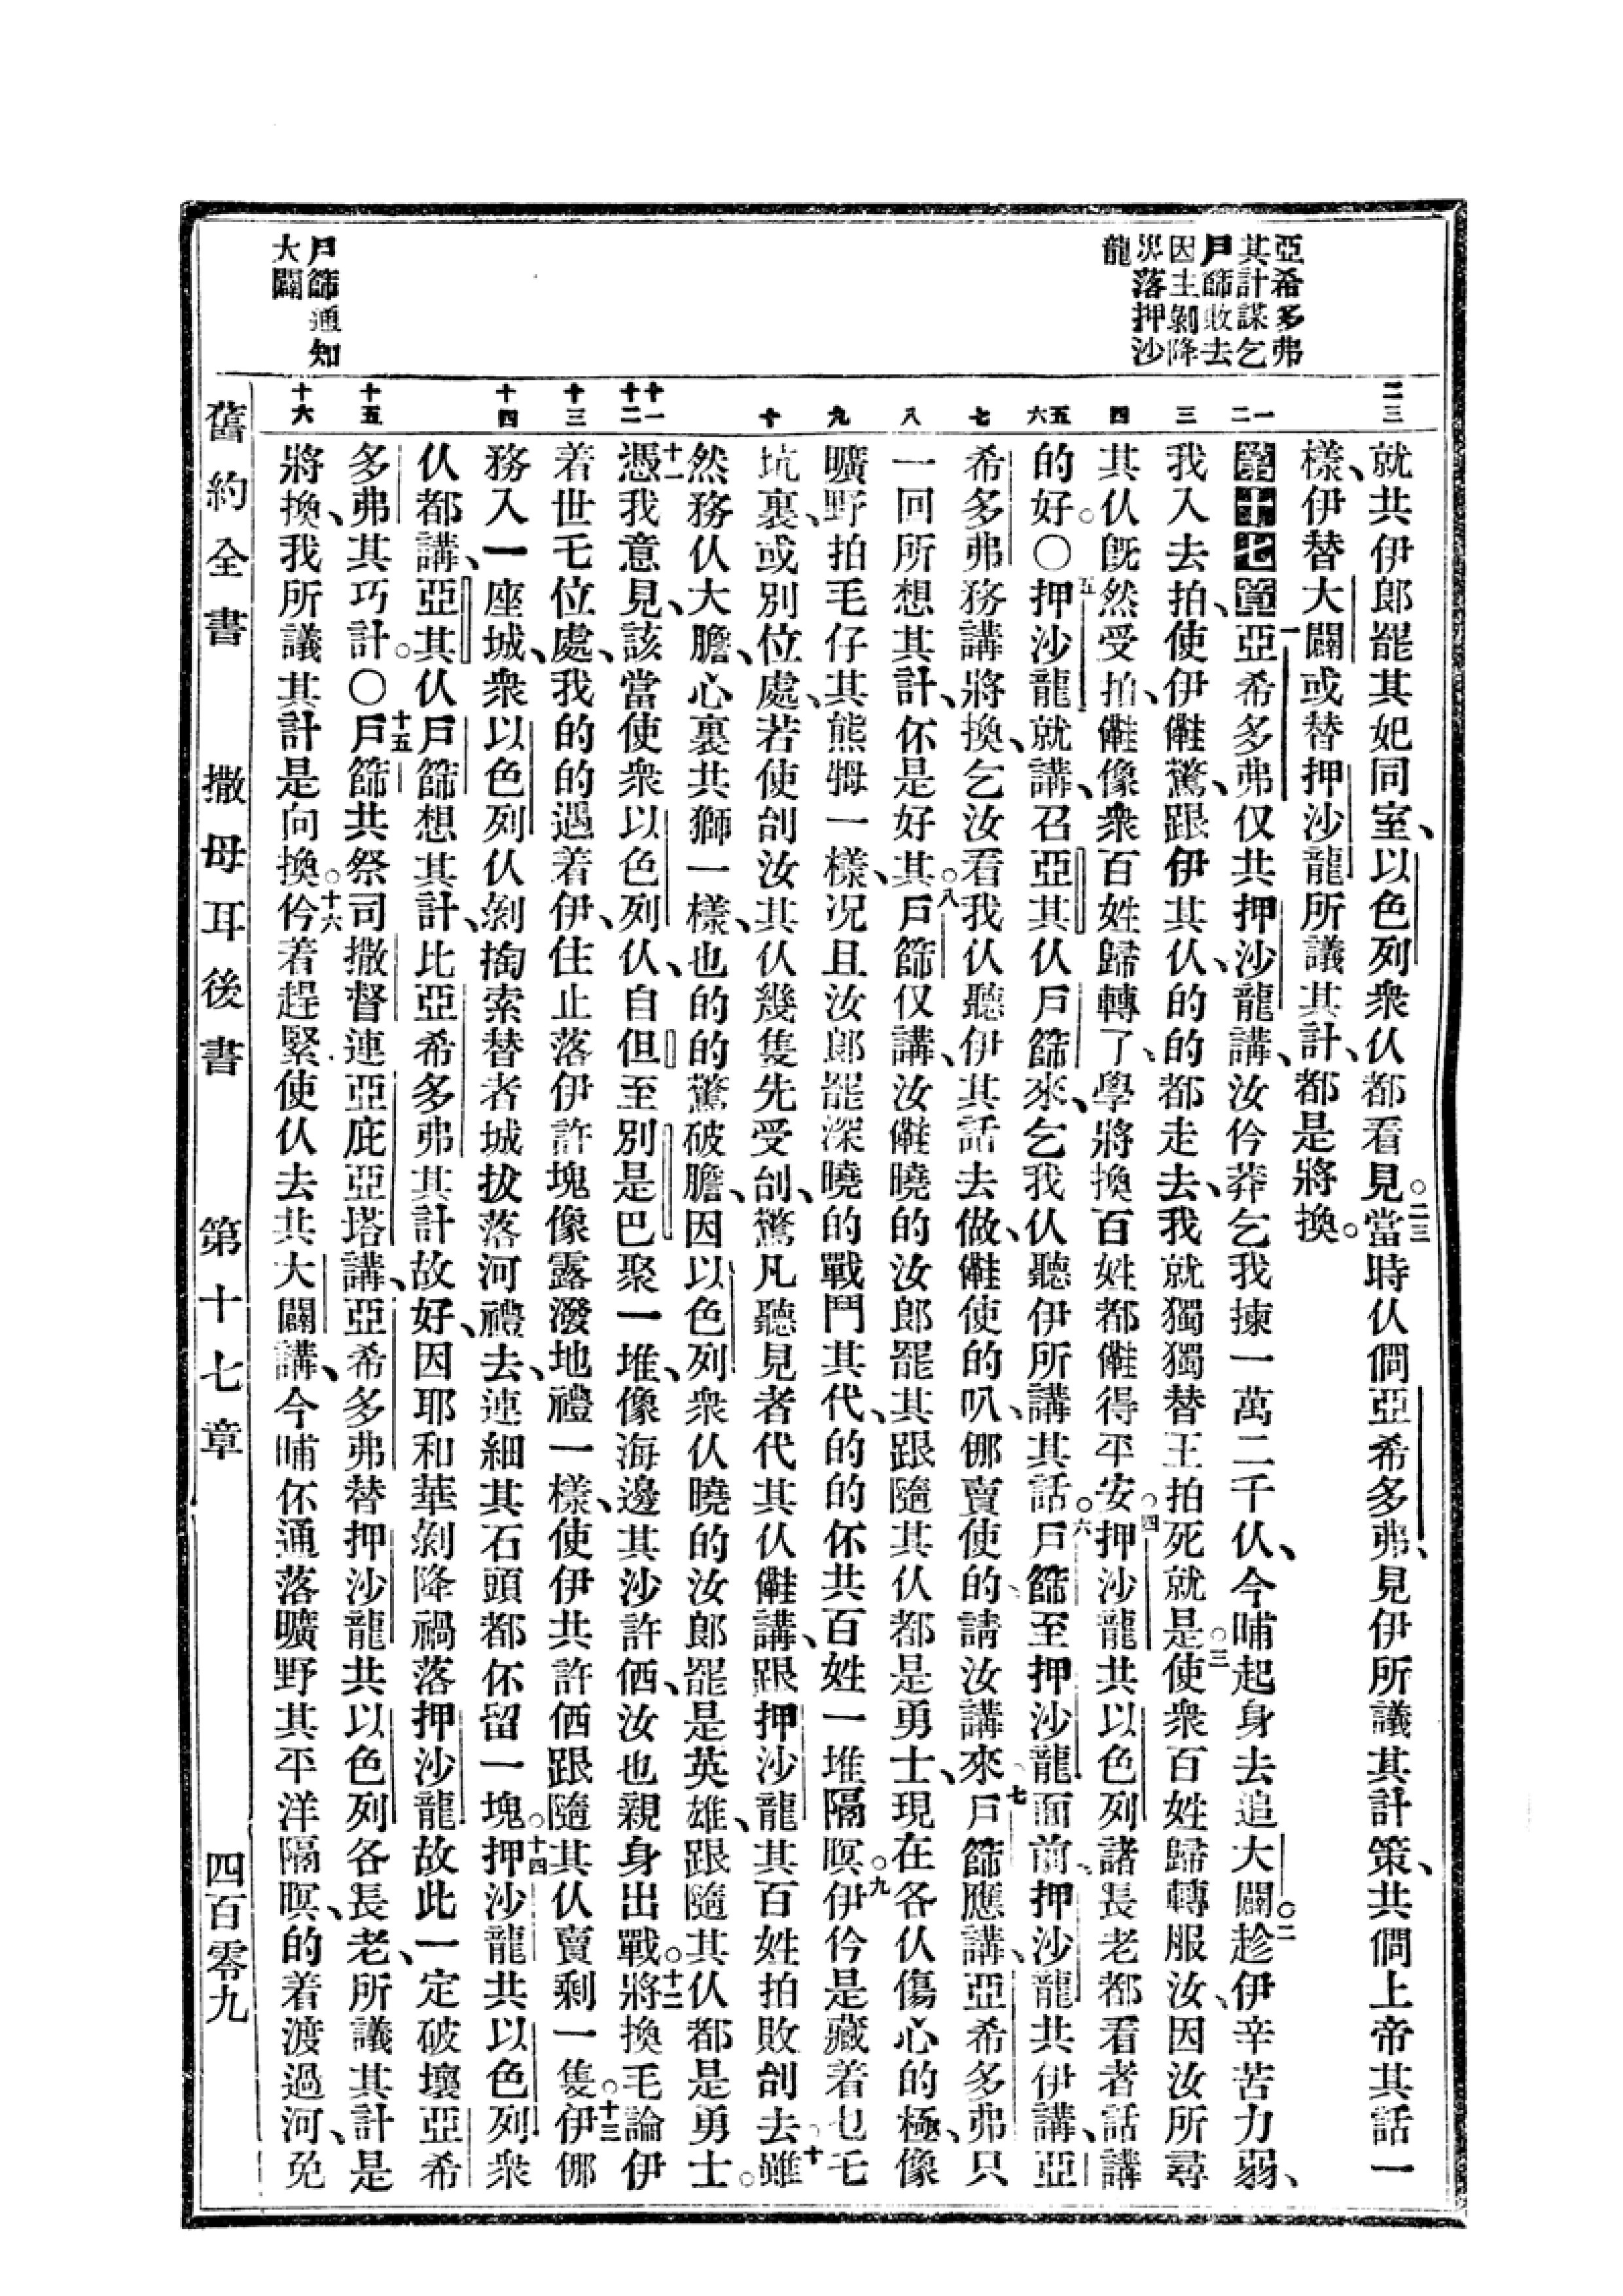 亞希多弗
其計謀乞
戶篩敗去
因主剝降
災落押沙
龍
戶篩通知
大闢
二三
一
二
三
四
五
六
七
八
九
十
十一
十二
十三
十四
十五
十六
就共伊郎罷其妃同室、以色列衆仈都看見。二三當時仈僩亞希多弗、見伊所議其計策、共僩上帝其話一
樣、伊替大闢或替押沙龍所議其計、都是將換。
第十七章一亞希多弗仅共押沙龍講、汝仱莽乞我揀一萬二千仈、今晡起身去追大闢。二趁伊辛苦力弱、
我入去拍、使伊㒕驚、跟伊其仈、的的都走去、我就獨獨替王拍死就是。三使衆百姓歸轉服汝、因汝所尋
其仈旣然受拍、㒕像衆百姓歸轉了、學將換百姓都㒕得平安。四押沙龍共以色列諸長老都看者話講
的好。〇五押沙龍就講、召亞其仈戶篩來、乞我仈聽伊所講其話。六戶篩至押沙龍面前、押沙龍共伊講、亞
希多弗務講將換、乞汝看我仈聽伊其話去做、㒕使的叭、㑚賣使的、請汝講來。七戶篩應講、亞希多弗只
一回所想其計、伓是好其。八戶篩仅講、汝㒕曉的汝郎罷其跟隨其仈都是勇士、現在各仈傷心的極、像
曠野拍毛仔其熊㹪一樣、况且汝郎罷深曉的戰鬥其代、的的伓共百姓一堆隔暝。九伊仱是藏着乜乇
坑裏、或別位處、若使刣汝其仈幾隻先受刣、驚凡聽見者代其仈㒕講、跟押沙龍其百姓拍敗刣去。十雖
然務仈大膽、心裏共獅一樣、也的的驚破膽、因以色列衆仈曉的汝郎罷是英雄、跟隨其仈都是勇士。
十一憑我意見、該當使衆以色列仈、自但至別是巴聚一堆、像海邊其沙許価、汝也親身出戰。十二將換毛論伊
着世乇位處、我的的遇着伊、住止落伊許塊像露潑地禮一樣、使伊共許価跟隨其仈賣剩一隻。十三伊㑚
務入一座城、衆以色列仈剝掏索替者城拔落河禮去、連細其石頭都伓留一塊。十四押沙龍共以色列衆
仈都講、亞其仈戶篩想其計、比亞希多弗其計故好、因耶和華剝降禍落押沙龍故此一定破壞亞希
多弗其巧計。〇十五戶篩共祭司撒督連亞庇亞塔講、亞希多弗替押沙龍共以色列各長老、所議其計是
將換、我所議其計是向換。十六仱着趕緊使仈去共大闢講、今晡伓通落曠野其平洋隔暝、的着渡過河、免
舊約全書 撒母耳後書 第十七章 四百零九